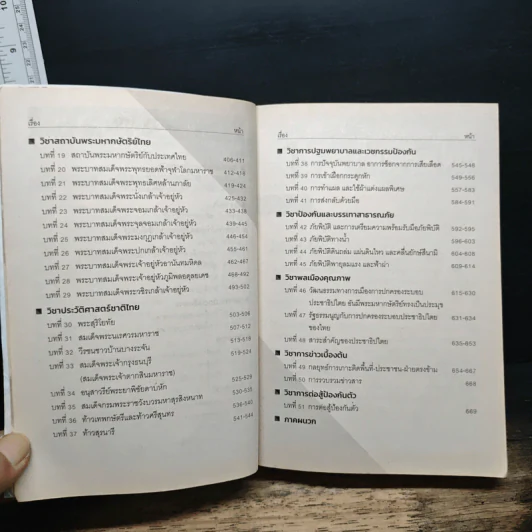 เรื่อง หน้า
วิชาสถาบันพระมหากษัตริย์ไทย
บทที่ 19 สถาบันพระมหากษัตริย์กับประเทศไทย 408-411
บทที่ 20 พระบาทสมเด็จพระพุทธยอดฟ้าจุฬาโลกมหาราช 412-418
บทที่ 21 พระบาทสมเด็จพระพุทธเลิศหล้านภาลัย 419-424
บทที่ 22 พระบาทสมเด็จพระนั่งเกล้าเจ้าอยู่หัว 425-432
บทที่ 23 พระบาทสมเด็จพระจอมเกล้าเจ้าอยู่หัว 433-438
บทที่ 24 พระบาทสมเด็จพระจุลจอมเกล้าเจ้าอยู่หัว 439-445
บทที่ 25 พระบาทสมเด็จพระมงกุฎเกล้าเจ้าอยู่หัว 446-454
บทที่ 26 พระบาทสมเด็จพระปกเกล้าเจ้าอยู่หัว 455-461
บทที่ 27 พระบาทสมเด็จพระเจ้าอยู่หัวอานันทมหิดล 462-467
บทที่ 28 พระบาทสมเด็จพระเจ้าอยู่หัวภูมิพลอดุลยเดช 468-492
บทที่ 29 พระบาทสมเด็จพระวชิรเกล้าเจ้าอยู่หัว 493-502
วิชาประวัติศาสตร์ชาติไทย
บทที่ 30 พระสุริโยทัย 503-506
บทที่ 31 สมเด็จพระนเรศวรมหาราช 507-512
บทที่ 32 วีรชนชาวบ้านบางระจัน 513-518
บทที่ 33 สมเด็จพระเจ้ากรุงธนบุรี 519-524
(สมเด็จพระเจ้าตากสินมหาราช)
บทที่ 34 อนุสาวรีย์พระยาพิชัยดาบหัก 525-529
บทที่ 35 สมเด็จกรมพระราชวังบวรมหาสุรสิงหนาท 530-535
บทที่ 36 ท้าวเทพกษัตรีและท้าวศรีสุนทร 536-540
บทที่ 37 ท้าวสุรนารี 541-544
เรื่อง หน้า
วิชาการปฐมพยาบาลและเวชกรรมป้องกัน
บทที่ 38 การปัจจุบันพยาบาล อาการช็อกจากการเสียเลือด 545-548
บทที่ 39 การเข้าเฝือกกระดูกหัก 549-556
บทที่ 40 การทำแผล และใช้ผ้าแต่งแผลพิเศษ 557-583
บทที่ 41 การส่งกลับด้วยมือ 584-591
วิชาป้องกันและบรรเทาสาธารณภัย
บทที่ 42 ภัยพิบัติ และการเตรียมความพร้อมรับมือภัยพิบัติ 592-595
บทที่ 43 ภัยพิบัติทางน้ำ 596-603
บทที่ 44 ภัยพิบัติดินถล่ม แผ่นดินไหว และคลื่นยักษ์สึนามิ 604-608
บทที่ 45 ภัยพิบัติพายุลมแรง และฟ้าผ่า 609-614
วิชาพลเมืองคุณภาพ
บทที่ 46 วัฒนธรรมทางการเมืองการปกครองระบอบ 615-630
ประชาธิปไตย อันมีพระมหากษัตริย์ทรงเป็นประมุข
บทที่ 47 รัฐธรรมนูญกับการปกครองระบอบประชาธิปไตย 631-634
ของไทย
บทที่ 48 สาระสำคัญของประชาธิปไตย 635-653
วิชาการข่าวเบื้องต้น
บทที่ 49 กลยุทธ์การเกาะติดพื้นที่-ประชาชน-ฝ่ายตรงข้าม 654-667
บทที่ 50 การรวบรวมข่าวสาร 668
วิชาการต่อสู้ป้องกันตัว
บทที่ 51 การต่อสู้ป้องกันตัว 669
ภาคผนวก